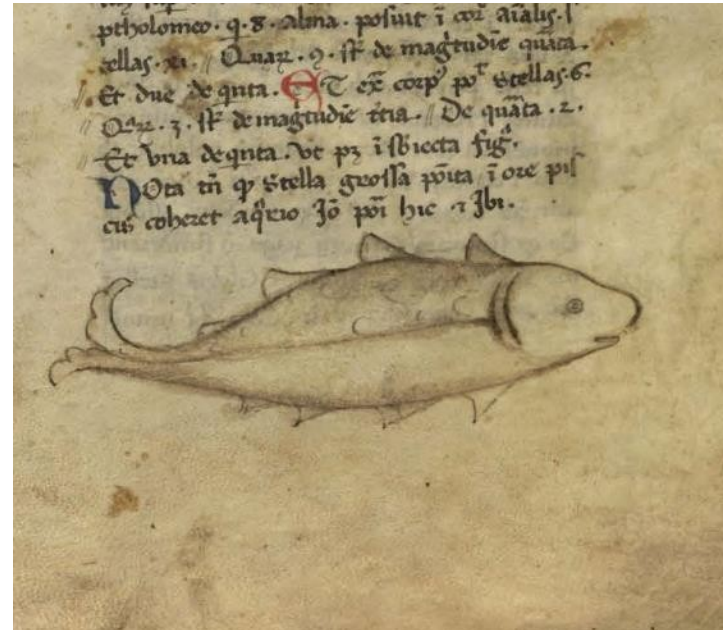 ptholomeo · q · 8 · alma · posuit ī cor̄ aīalis ·
stellas · xi · // Quaꝝ · 9 · st̄ de mag̃tudīe quāta ·
// Et due de qnta · ET ex̄ corpꝰ po᷑ stellas · 6 ·
// Qaꝝ · 3 · st̄ de mag̃tudīe t̄tia · // De quāta · 2 ·
// Et vna de qnta · vt pꝫ ī sbiecta fig̃ ·
NOta tn̄ ꝙ stella grossa poīta ī ore pis
cis coheret aq̃rio Iō poī hic ⁊ Ibi ·